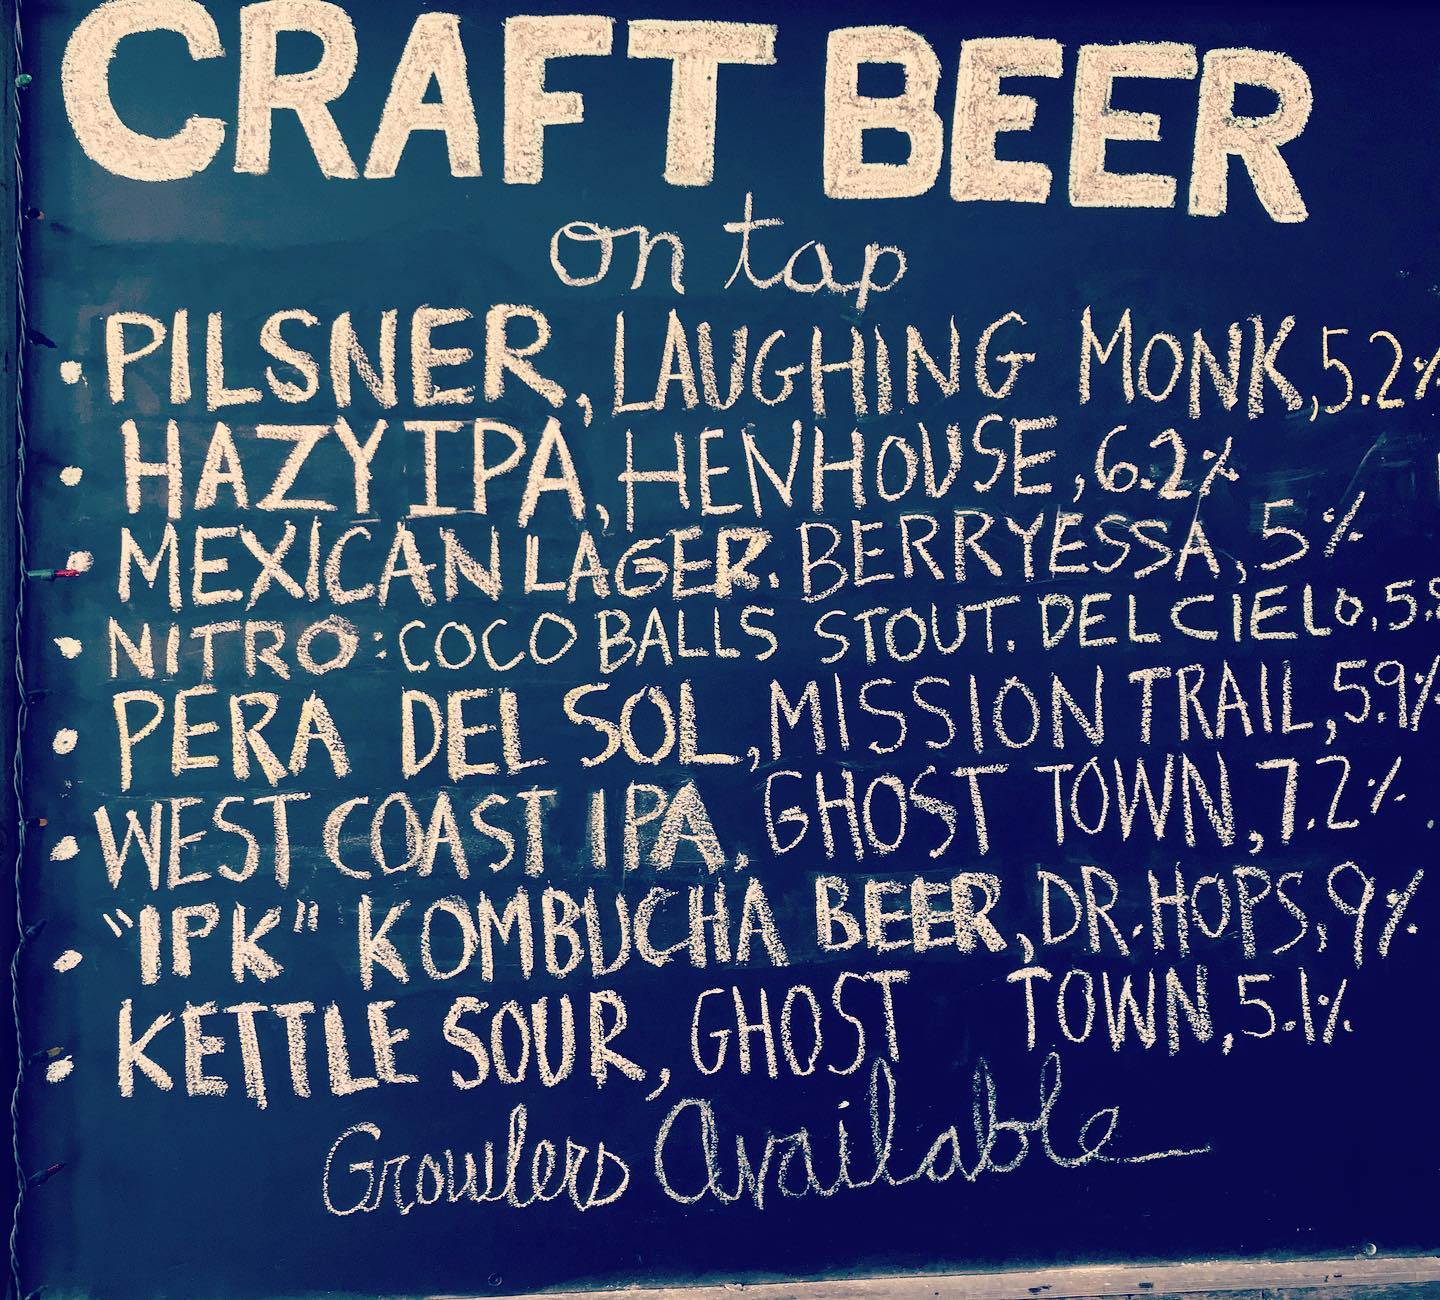 CRAFT BEER
on tap
• PILSNER, LAUGHING MONK, 5.2%
• HAZY IPA, HENHOUSE, 6.2%
• MEXICAN LAGER. BERRYESSA, 5%
• NITRO: COCO BALLS STOUT. DEL CIELO,
• PERA DEL SOL, MISSION TRAIL, 5.9%
• WEST COAST IPA. GHOST TOWN, 7.2%
• "IPK" KOMBUCHA BEER, DR. HOPS, 9%
• KETTLE SOUR, GHOST TOWN, 5.1%
Growlers Available